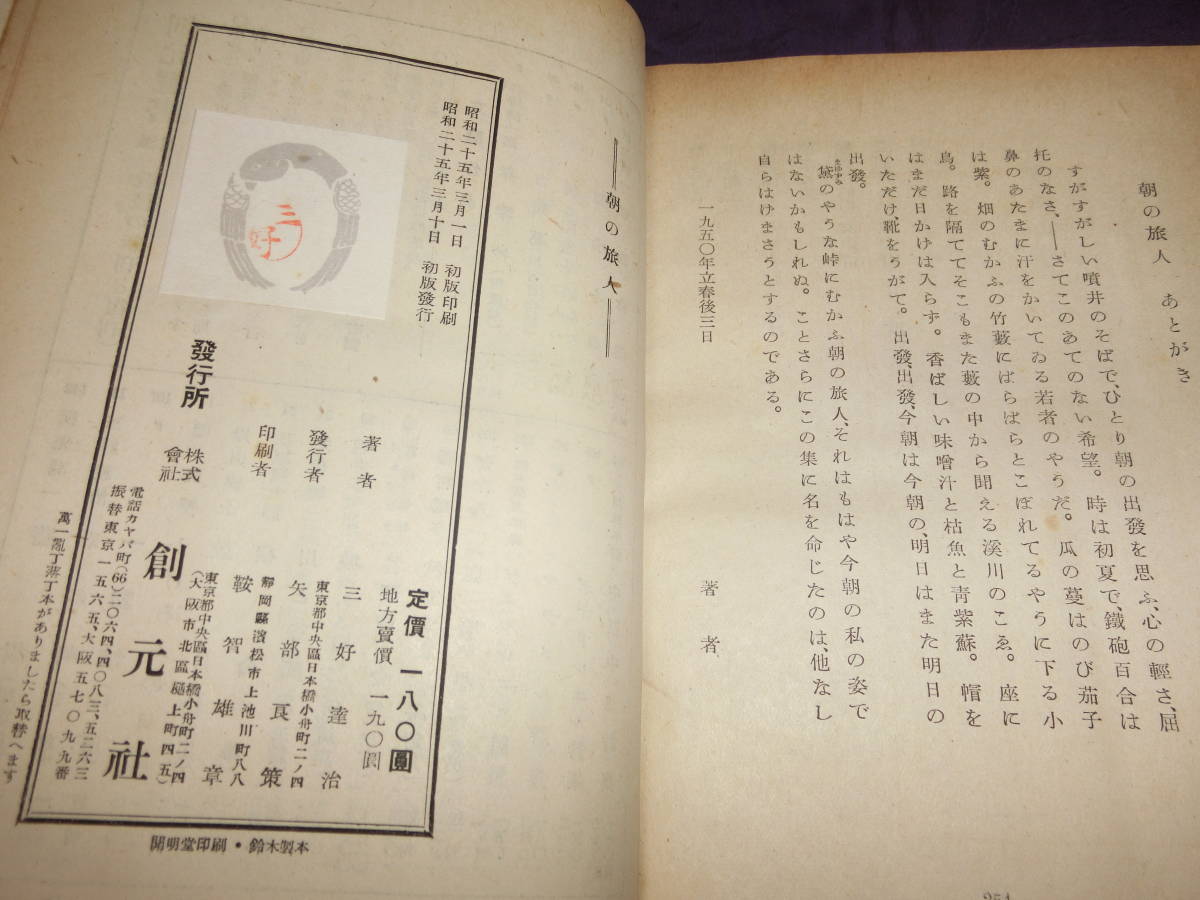 朝の旅人　あとがき
すがすがしい噴井のそばで、ひとり朝の出發を思ふ、心の輕さ、屈
托のなさ、――さてこのあてのない希望。時は初夏で、鐵砲百合は
鼻のあたまに汗をかいてゐる若者のやうだ。瓜の蔓はのび茄子
は紫。畑のむかふの竹藪にばらばらとこぼれてるやうに下る小
鳥。路を隔ててそこもまた藪の中から聞える溪川のこゑ。座に
はまだ日かけは入らず。香ばしい味噌汁と枯魚と青紫蘇。帽を
いただけ、靴をうがて。出發、出發、今朝は今朝の、明日はまた明日の
出發。
黛のやうな峠にむかふ朝の旅人、それはもはや今朝の私の姿で
まゆずみ
はないかもしれぬ。ことさらにこの集に名を命じたのは、他なし
自らはげまさうとするのである。
一九五〇年立春後三日
著者
251
――朝の旅人――
昭和二十五年三月一日　初版印刷
昭和二十五年三月十日　初版發行
三好
定價　一八〇圓
地方賣價　一九〇圓
著者　三好達治
東京都中央區日本橋小舟町二ノ四
發行者　矢部良策
靜岡縣濱松市上池川町八八
印刷者　鞍智雄章
東京都中央區日本橋小舟町二ノ四
（大阪市北區樋上町四五）
發行所　株式會社　創元社
電話カヤバ町(66)二〇六四、四〇八三、五二六三
振替東京一五六五、大阪五七〇九九番
萬一亂丁落丁本がありましたら取替へます
開明堂印刷・鈴木製本